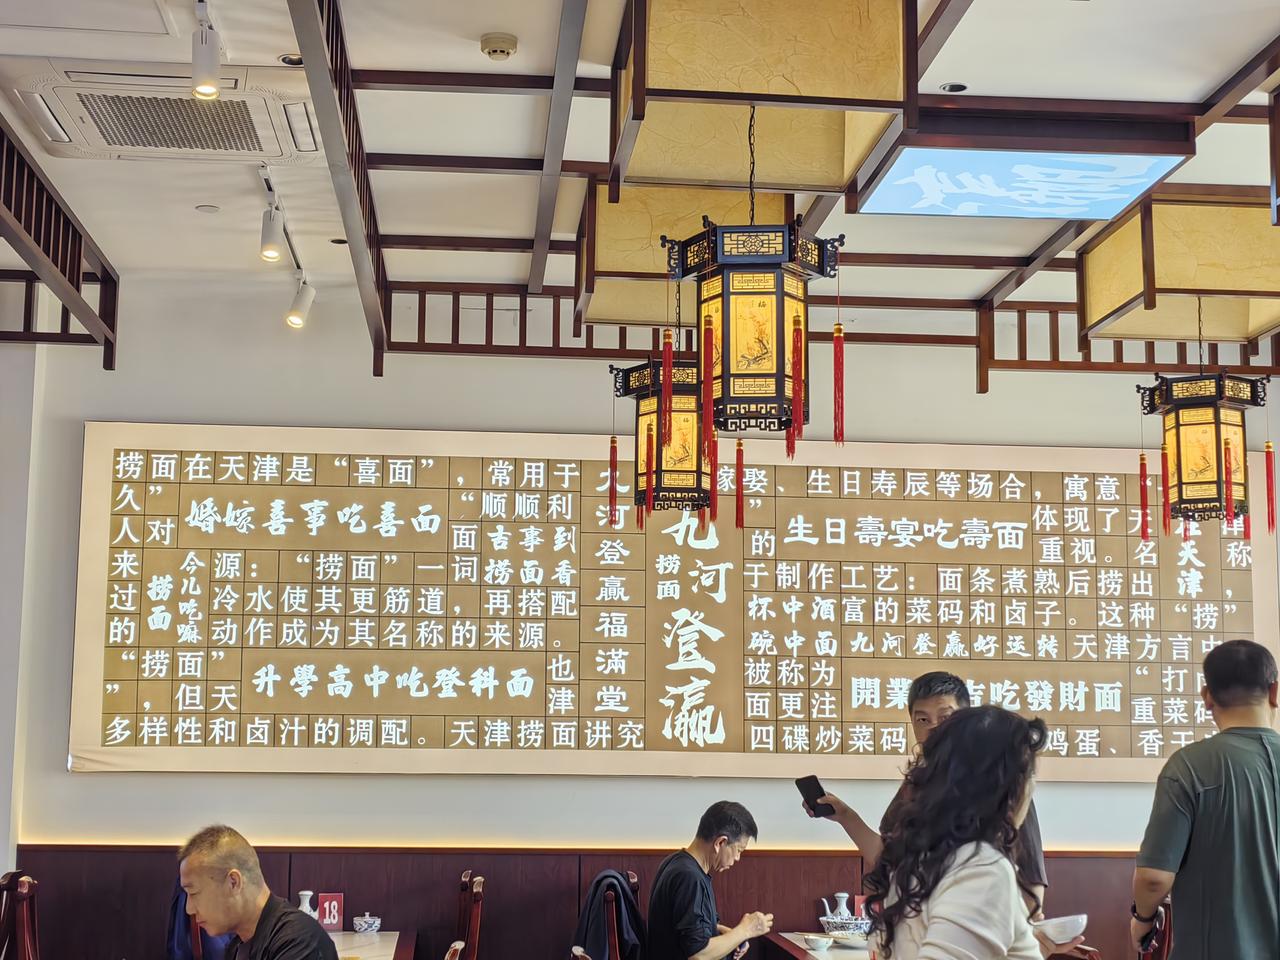 捞面在天津是“喜面”，常用于
嫁娶、生日寿辰等场合，寓意“
久”
人对
来
过
的
婚嫁喜事吃喜面
“顺顺利
面
吉事到
捞面香
捞面
今儿吃嘛
源：“捞面”一词
冷水使其更筋道，再搭配
动作成为其名称的来源。
“捞面”
也
”，但天
升學高中吃登科面
津
多样性和卤汁的调配。天津捞面讲究
河登赢福满堂
捞面
九河登瀛
”
的
生日壽宴吃壽面
体现了天
重视。名
称
天津
于制作工艺：面条煮熟后捞出，
杯中酒
富的菜码和卤子。这种“捞”
碗中面
九河登赢好运转
天津方言中
被称为
“打
面更注
開業
吉吃發財面
重菜码
四碟炒菜码
鸡蛋、香干
18